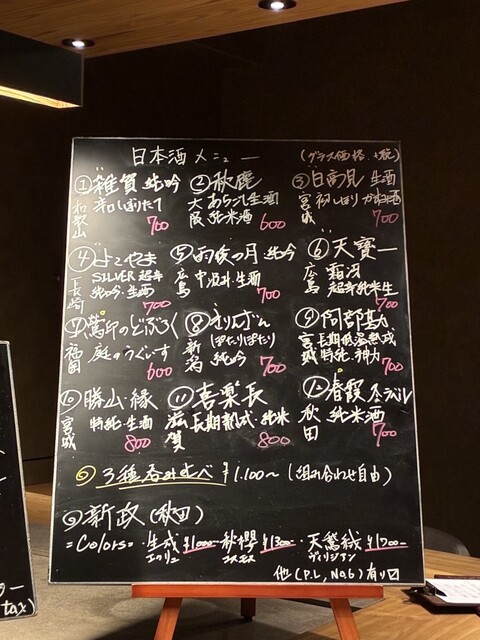 日本酒メニュー (グラス価格、+税)
①雑賀 純吟
和歌山 辛口しぼりたて
700
②秋鹿
大阪 あらごし生酒
純米酒 600
③日高見 生酒
宮城 初しぼり
700
④よこやま
長崎 SILVER超辛
純吟・生酒
700
⑤雨後の月 純吟
広島 中汲み・生酒
700
⑥天寶一
広島
超辛純米生
700
⑦鶯印のどぶろく
福岡 庭のうぐいす
600
⑧きりんざん
新潟 ぽたりぽたり
純吟 700
⑨阿部勘
宮城 長期低温熟成
特純・ 700
⑩勝山・縁
宮城 特純・生酒
800
⑪喜楽長
滋賀 長期熟成・純米
800
⑫春霞 ラベル
秋田 純米酒
700
◎3種呑みくらべ ¥1.100〜 (組み合わせ自由)
◎新政(秋田)
=Colors= ・生成 ¥1000 ・秋櫻 ¥1300 ・天鵞絨 ¥1700
エクリュ コスモス ヴィリジアン
他(P.L, No.6)有り
tax)